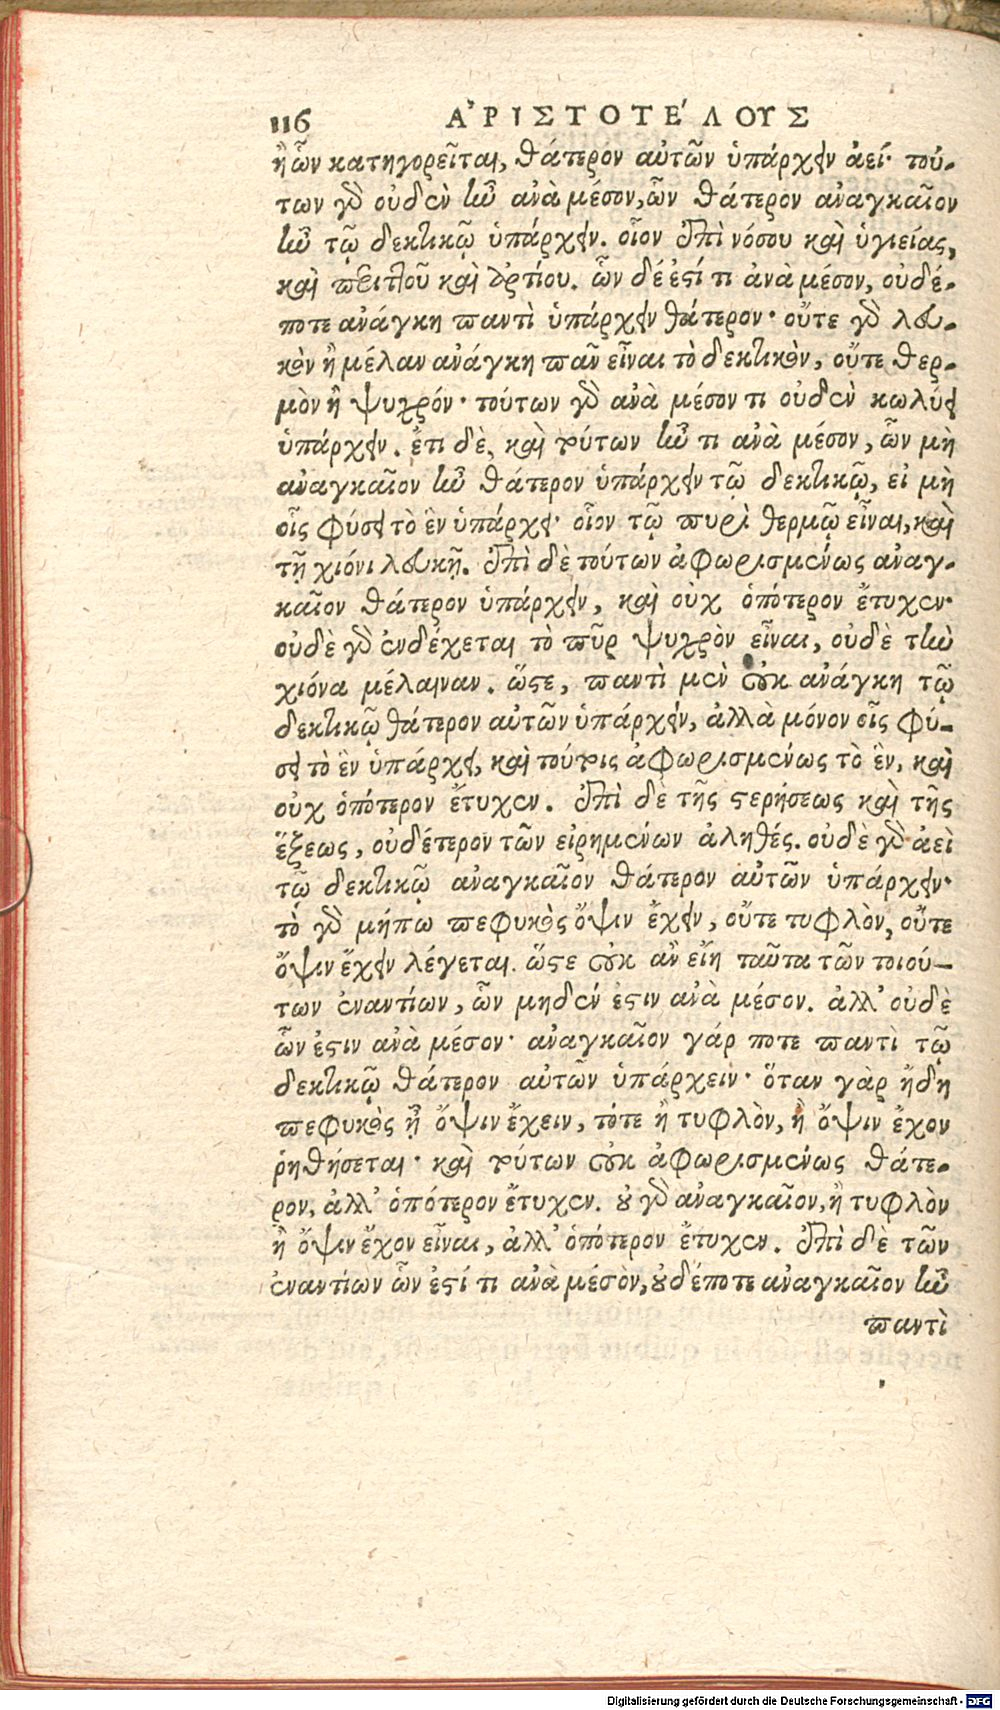 116 ΑʼΡΙΣΤΟΤΕ´ΛΟΥΣ
ἢ ὧν κατηγορεῖται, θάτερον αὐτῶν ὑπάρχειν ἀεί· τού-
των γὸ οὐδὲν ἦν ἀνὰ μέσον, ὧν θάτερον ἀναγκαῖον
ἦν τῷ δεκτικῷ ὑπάρχειν. οἷον ἐπὶ νόσου καὶ ὑγιείας,
καὶ περιττοῦ καὶ ἀρτίου. ὧν δέ ἐστί τι ἀνὰ μέσον, οὐδέ-
ποτε ἀνάγκη παντὶ ὑπάρχειν θάτερον· οὔτε γὸ λευ-
κὸν ἢ μέλαν ἀνάγκη πᾶν εἶναι τὸ δεκτικὸν, οὔτε θερ-
μὸν ἢ ψυχρόν· τούτων γὸ ἀνὰ μέσον τι οὐδὲν κωλύει
ὑπάρχειν. ἔτι δὲ, καὶ τούτων ἦν τι ἀνὰ μέσον, ὧν μὴ
ἀναγκαῖον ἦν θάτερον ὑπάρχειν τῷ δεκτικῷ, εἰ μὴ
οἷς φύσει τὸ ἓν ὑπάρχει· οἷον τῷ πυρὶ θερμῷ εἶναι, καὶ
τῇ χιόνι λευκῇ. ἐπὶ δὲ τούτων ἀφωρισμένως ἀναγ-
καῖον θάτερον ὑπάρχειν, καὶ οὐχ ὁπότερον ἔτυχεν·
οὐδὲ γὸ ἐνδέχεται τὸ πῦρ ψυχρὸν εἶναι, οὐδὲ τὴν
χιόνα μέλαιναν. ὥστε, παντὶ μὲν οὐκ ἀνάγκη τῷ
δεκτικῷ θάτερον αὐτῶν ὑπάρχειν, ἀλλὰ μόνον οἷς φύ-
σει τὸ ἓν ὑπάρχει, καὶ τούτοις ἀφωρισμένως τὸ ἓν, καὶ
οὐχ ὁπότερον ἔτυχεν. ἐπὶ δὲ τῆς στερήσεως καὶ τῆς
ἕξεως, οὐδέτερον τῶν εἰρημένων ἀληθές. οὐδὲ γὸ ἀεὶ
τῷ δεκτικῷ ἀναγκαῖον θάτερον αὐτῶν ὑπάρχειν·
τὸ γὸ μήπω πεφυκὸς ὄψιν ἔχειν, οὔτε τυφλὸν, οὔτε
ὄψιν ἔχειν λέγεται. ὥστε οὐκ ἂν εἴη ταῦτα τῶν τοιού-
των ἐναντίων, ὧν μηδέν ἐστιν ἀνὰ μέσον. ἀλλ’ οὐδὲ
ὧν ἐστιν ἀνὰ μέσον· ἀναγκαῖον γάρ ποτε παντὶ τῷ
δεκτικῷ θάτερον αὐτῶν ὑπάρχειν· ὅταν γὰρ ἤδη
πεφυκὸς ᾖ ὄψιν ἔχειν, τότε ἢ τυφλὸν, ἢ ὄψιν ἔχον
ῥηθήσεται· καὶ τούτων οὐκ ἀφωρισμένως θάτε-
ρον, ἀλλ’ ὁπότερον ἔτυχεν. οὐ γὸ ἀναγκαῖον, ἢ τυφλὸν
ἢ ὄψιν ἔχον εἶναι, ἀλλ’ ὁπότερον ἔτυχεν. ἐπὶ δὲ τῶν
ἐναντίων ὧν ἐστί τι ἀνὰ μέσὸν, οὐδέποτε ἀναγκαῖον ἦν
παντὶ
Digitalisierung gefördert durch die Deutsche Forschungsgemeinschaft - DFG